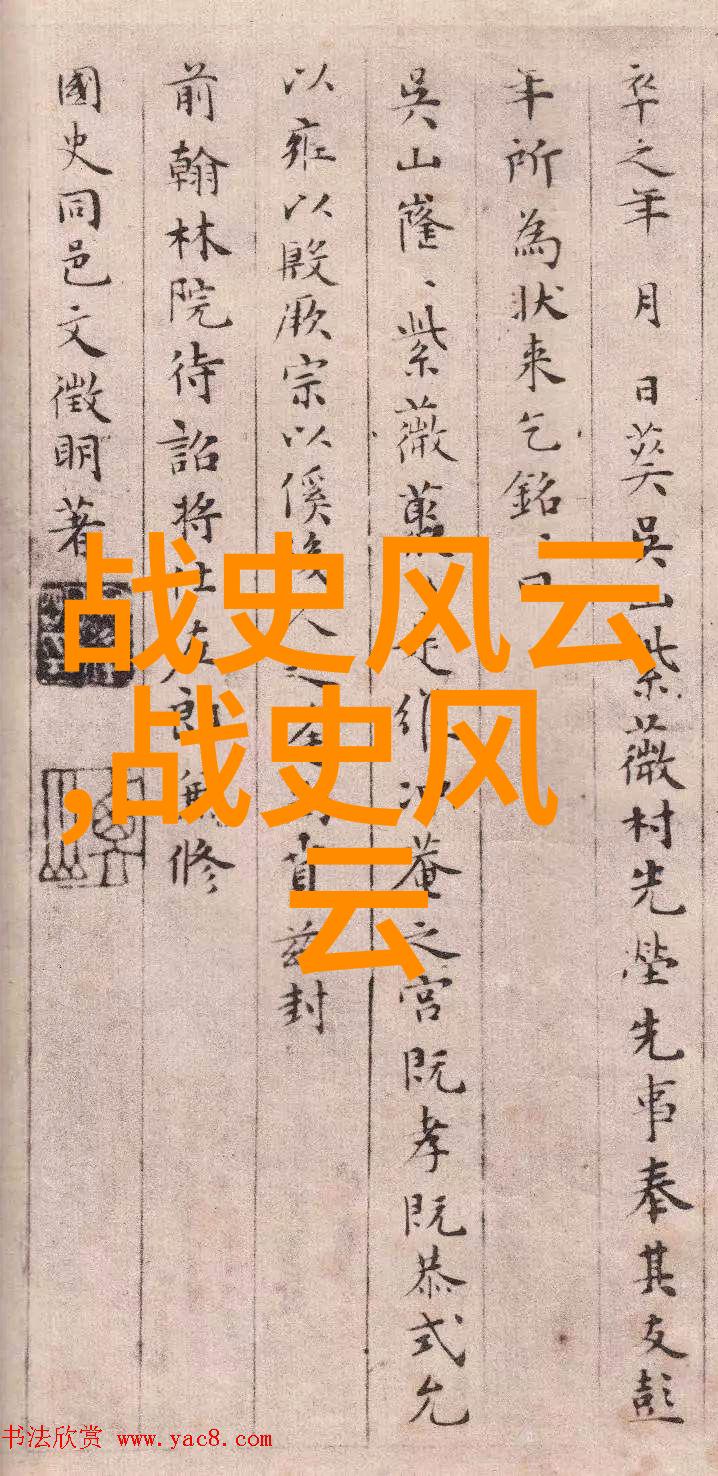 卒之年 月 日葬吳山紫薇村先塋先事奉其友彭
年所為狀來乞銘、曰
吳山窿、紫薇
之宮既孝既恭式允
以雍以殷厥宗以傒
茲封
前翰林院待詔將仕左郎兼修
國史同邑文徵明著
战史风云
,战史风
云
书法欣赏 www.yac8.com